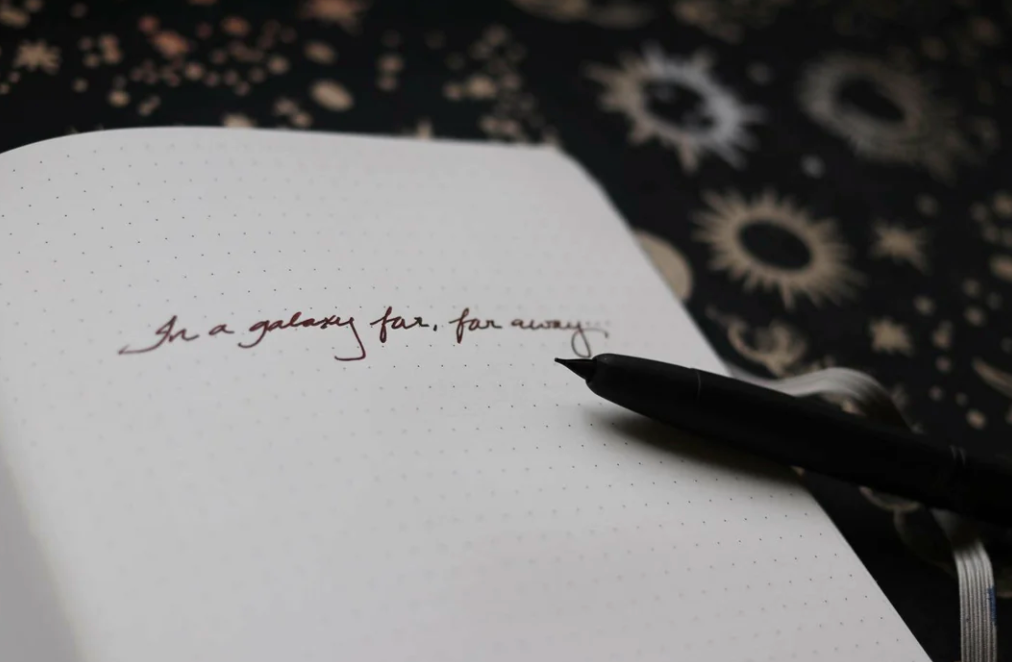 In a galaxy far, far away